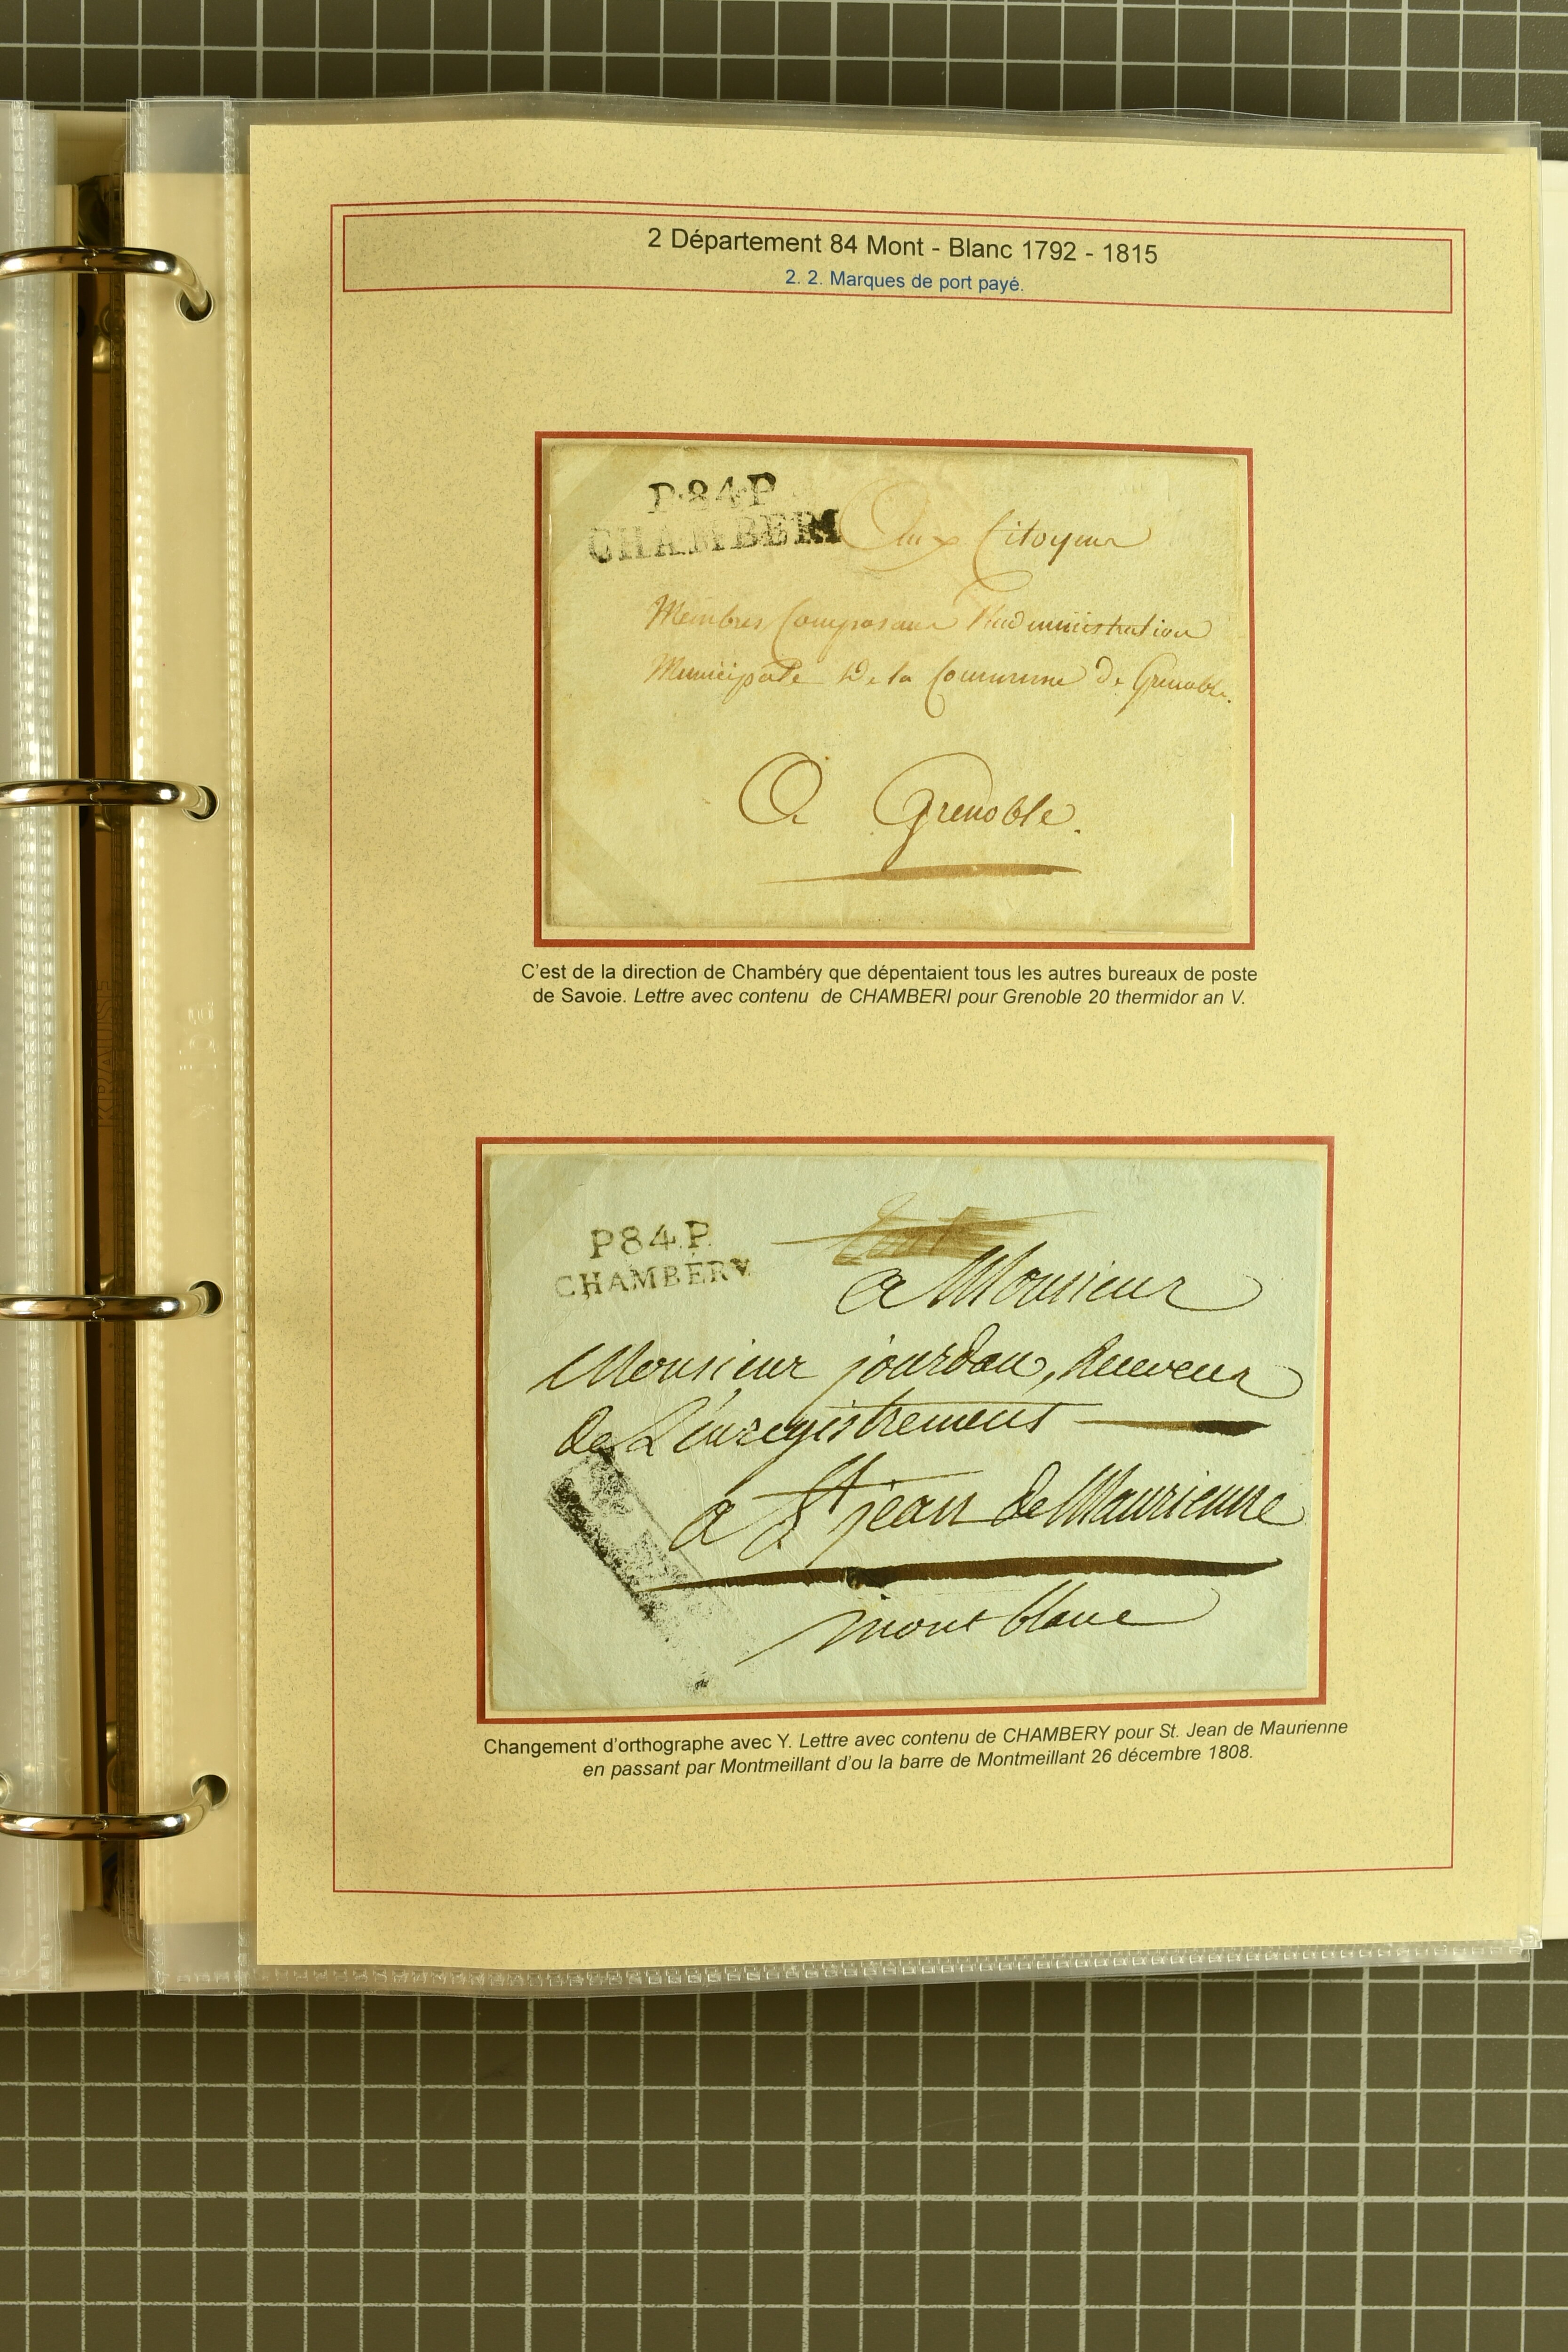 2 Département 84 Mont - Blanc 1792 - 1815
2. 2. Marques de port payé.
P.84.P
CHAMBERI
Aux Citoyens
Membres Composant l'administration
Municipale De la Commune De Grenoble.
A Grenoble.
C'est de la direction de Chambéry que dépentaient tous les autres bureaux de poste
de Savoie. Lettre avec contenu de CHAMBERI pour Grenoble 20 thermidor an V.
P.84.P.
CHAMBÉRY
a Monsieur
Monsieur jourdan, Receveur
de L'enregistrement
a St jean de Maurienne
mont blanc
Changement d'orthographe avec Y. Lettre avec contenu de CHAMBERY pour St. Jean de Maurienne
en passant par Montmeillant d'ou la barre de Montmeillant 26 décembre 1808.